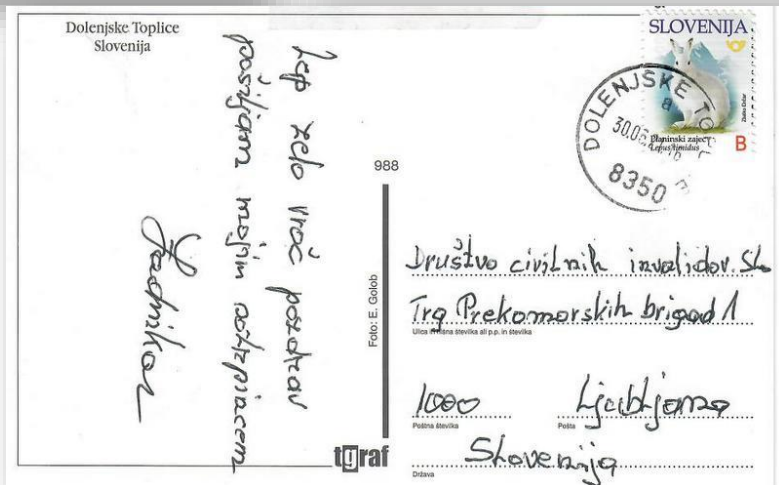 Dolenjske Toplice
Slovenija
Lep zelo vroč pozdrav
pošiljam mojim
988
Foto: E. Golob
tgraf
SLOVENIJA
Planinski zajec
Lepus timidus
B
DOLENJSKE TO
a
8350
Društvo civilnih invalidov. Slo
Trg Prekomorskih brigad 1
Ulica in hišna številka ali p.p. in številka
1000 Ljubljana
Poštna številka Pošta
Slovenija
Država